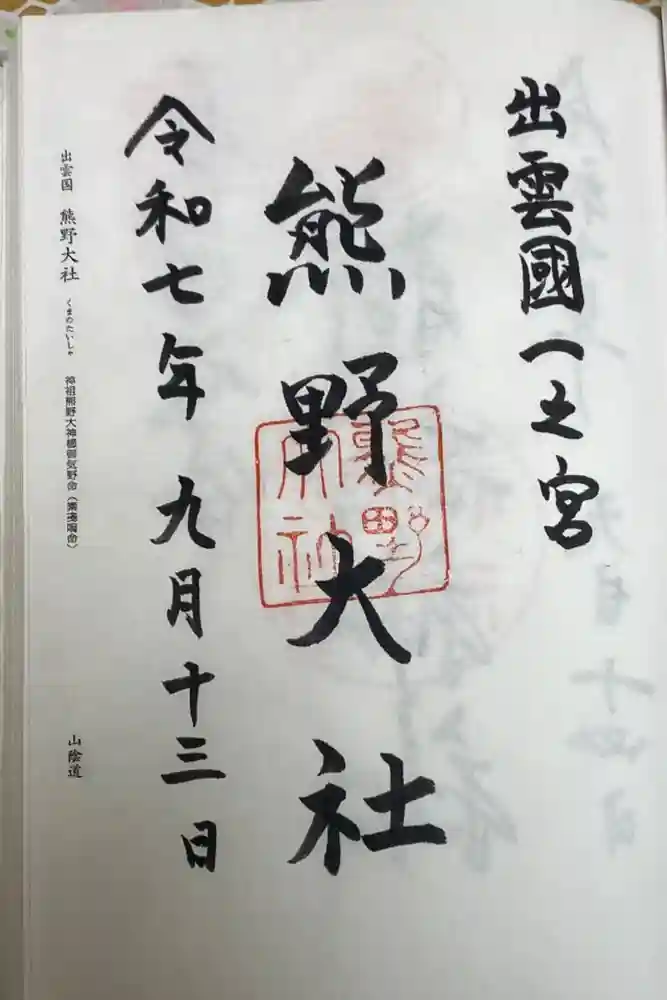 出雲國一之宮
熊野大社
熊野大社
令和七年九月十三日
出雲国 熊野大社 くまのたいしゃ 神祖熊野大神櫛御気野命(素戔嗚命)
山陰道